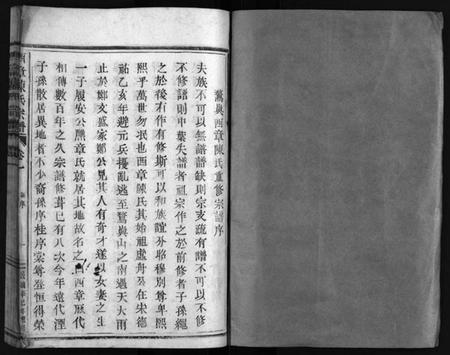 鷲與西章陳氏重修宗譜序
夫族不可以無譜譜缺則宗支疏有譜不可以不修
不修譜則中葉失譜者祖宗作之於前修者子孫繩
之於後有作有修斯可以和族誼分昭穆別尊卑熙
熙乎萬世勿泯也西章陳氏其始祖處舟公在宋德
祐乙亥年避元兵擾亂逃至鷲與山之南過天大雨
止於鄭文盛家鄭公見其人有奇才遂以女妻之生
一子履安公贅章氏就居其地故名之曰西章歷代
相傳數百年之久宗譜修葺已有八次今年遠代湮
子孫散居異地者不少裔孫序桂序棠等登恒得榮
西章陳氏宗譜 卷一 序 一